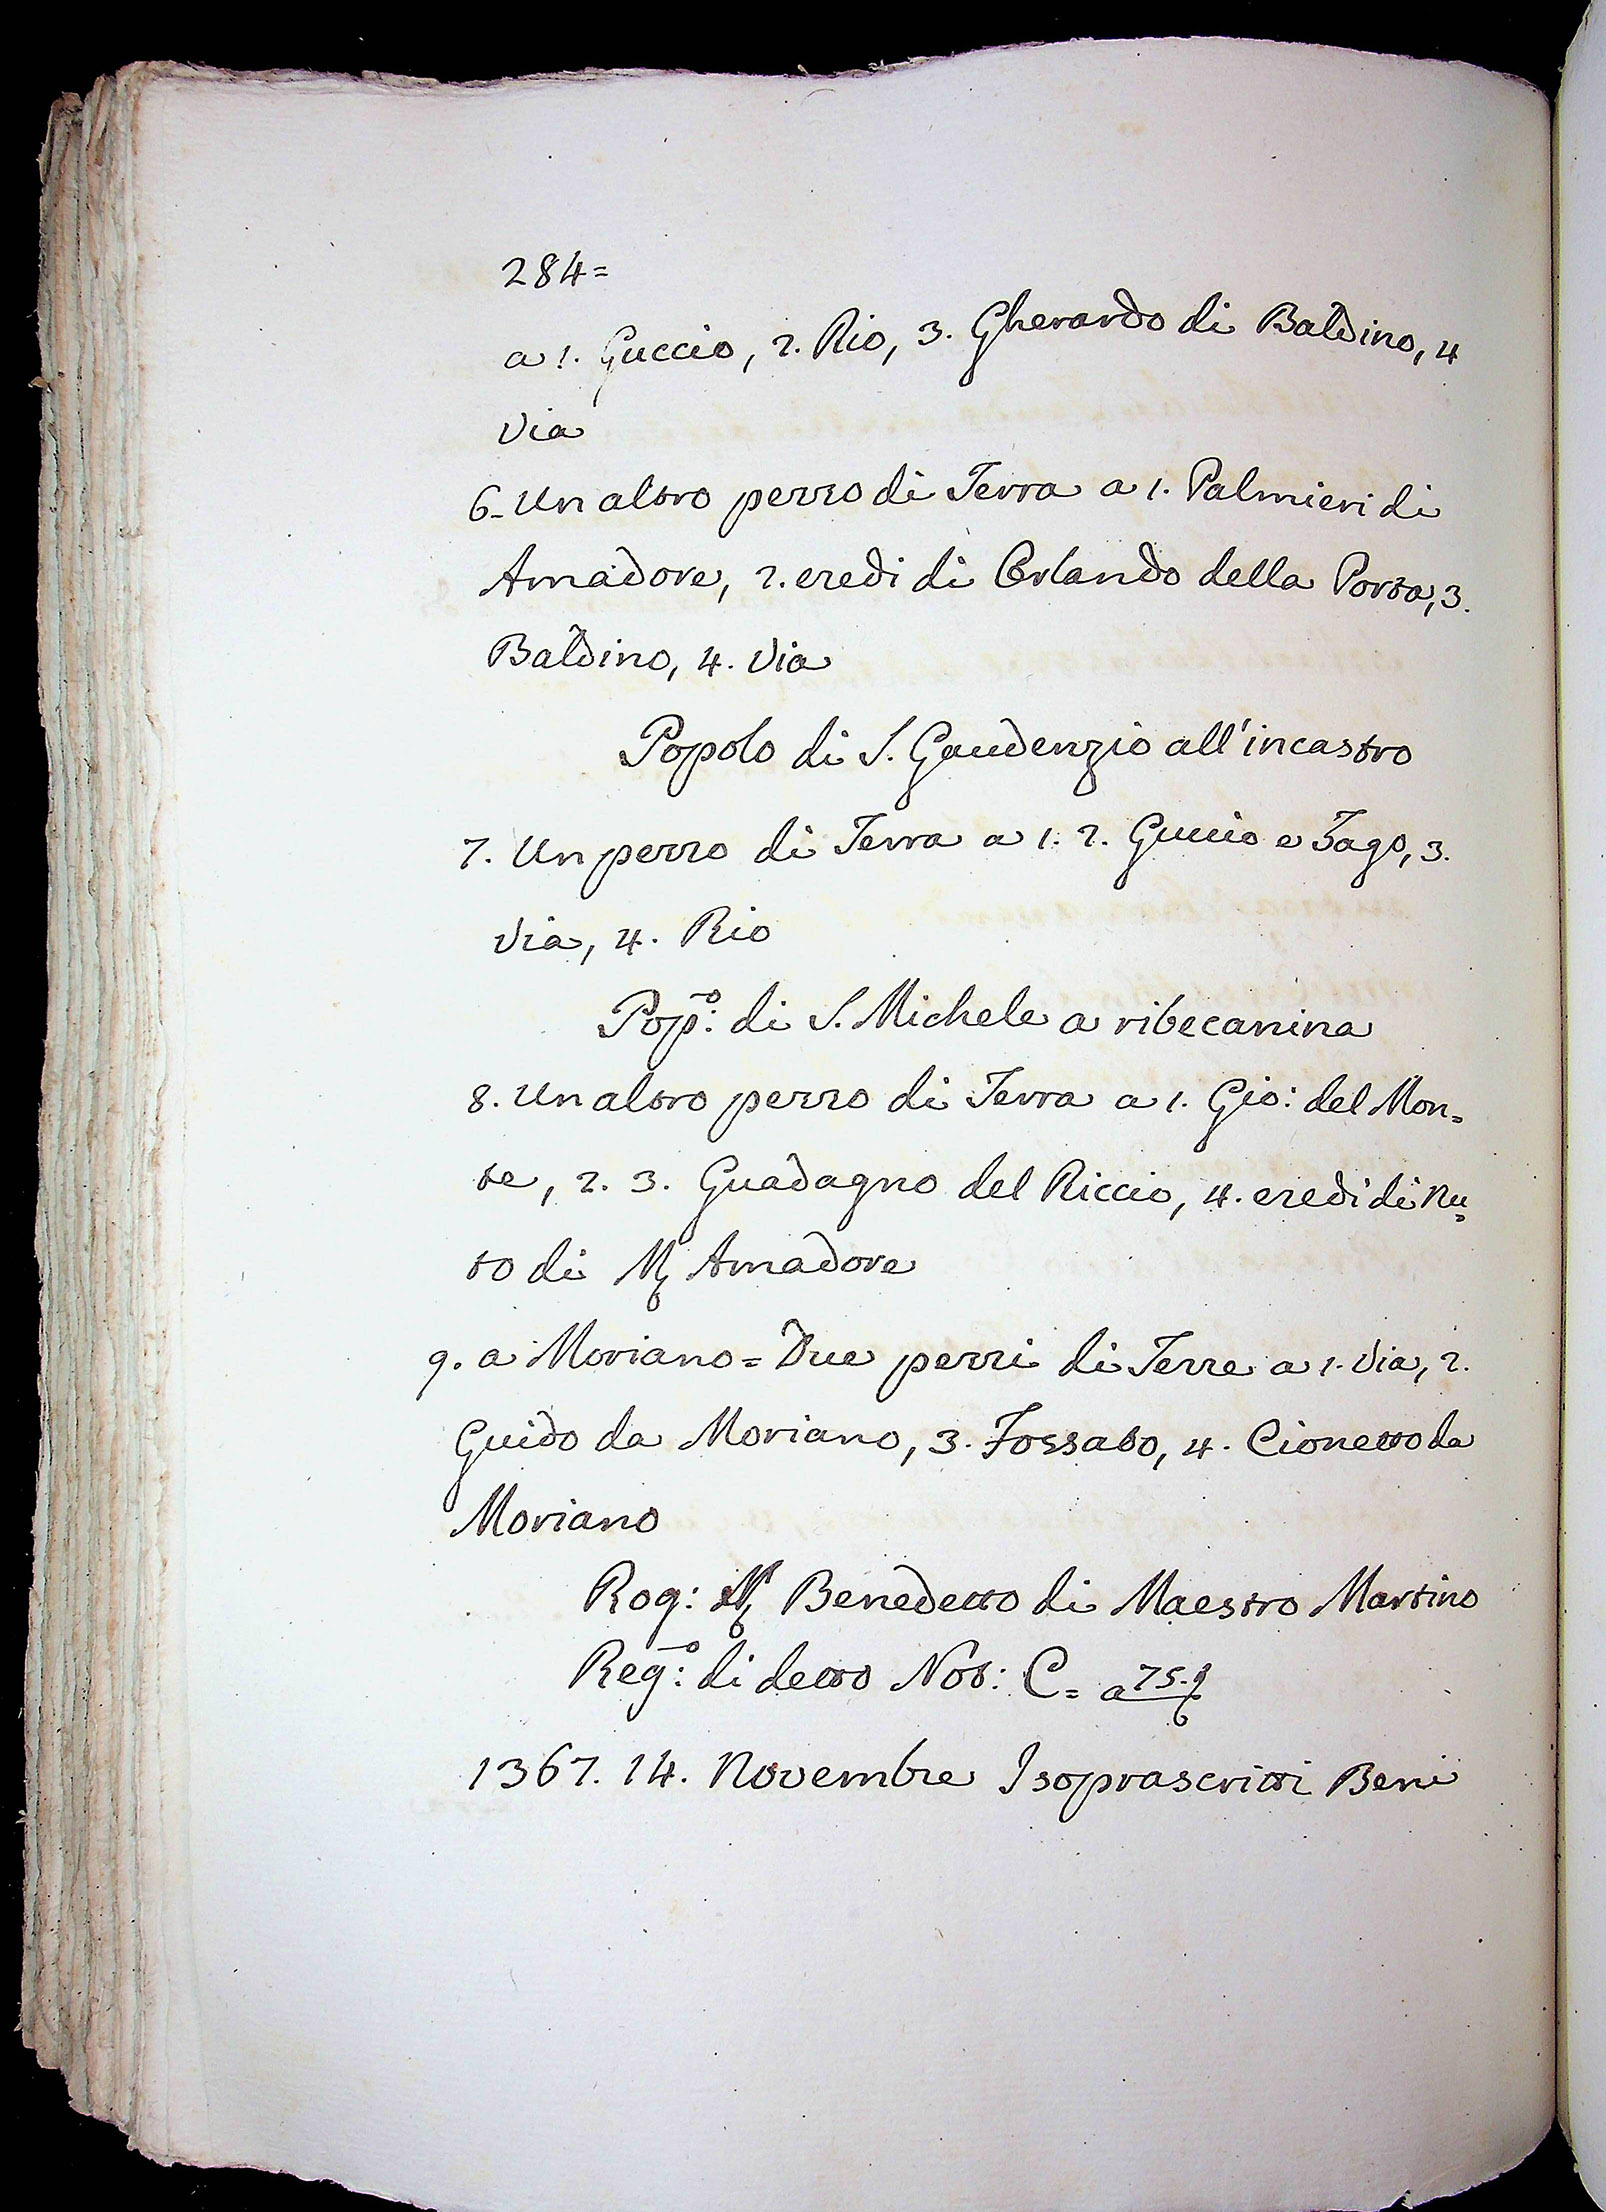 284=
a 1. Guccio, 2. Rio, 3. Gherardo di Baldino, 4
Via
6. Un altro pezzo di Terra a 1. Palmieri di
Amadore, 2. eredi di Orlando della Porta, 3.
Baldino, 4. Via
Popolo di S. Gaudenzio all'incastro
7. Un pezzo di Terra a 1. 2. Guccio e Tago, 3.
Via, 4. Rio
Pop.o di S. Michele a ribecanina
8. Un altro pezzo di Terra a 1. Gio: del Mon=
te, 2. 3. Guadagno del Riccio, 4. eredi di Nu=
to di M. Amadore
9. a Moriano = Due pezzi di Terre a 1. Via, 2.
Guido da Moriano, 3. Fossato, 4. Cionetto da
Moriano
Rog: Benedetto di Maestro Martino
Reg.o: di detto Not: C= a 75.
1367. 14. Novembre I soprascritti Beni